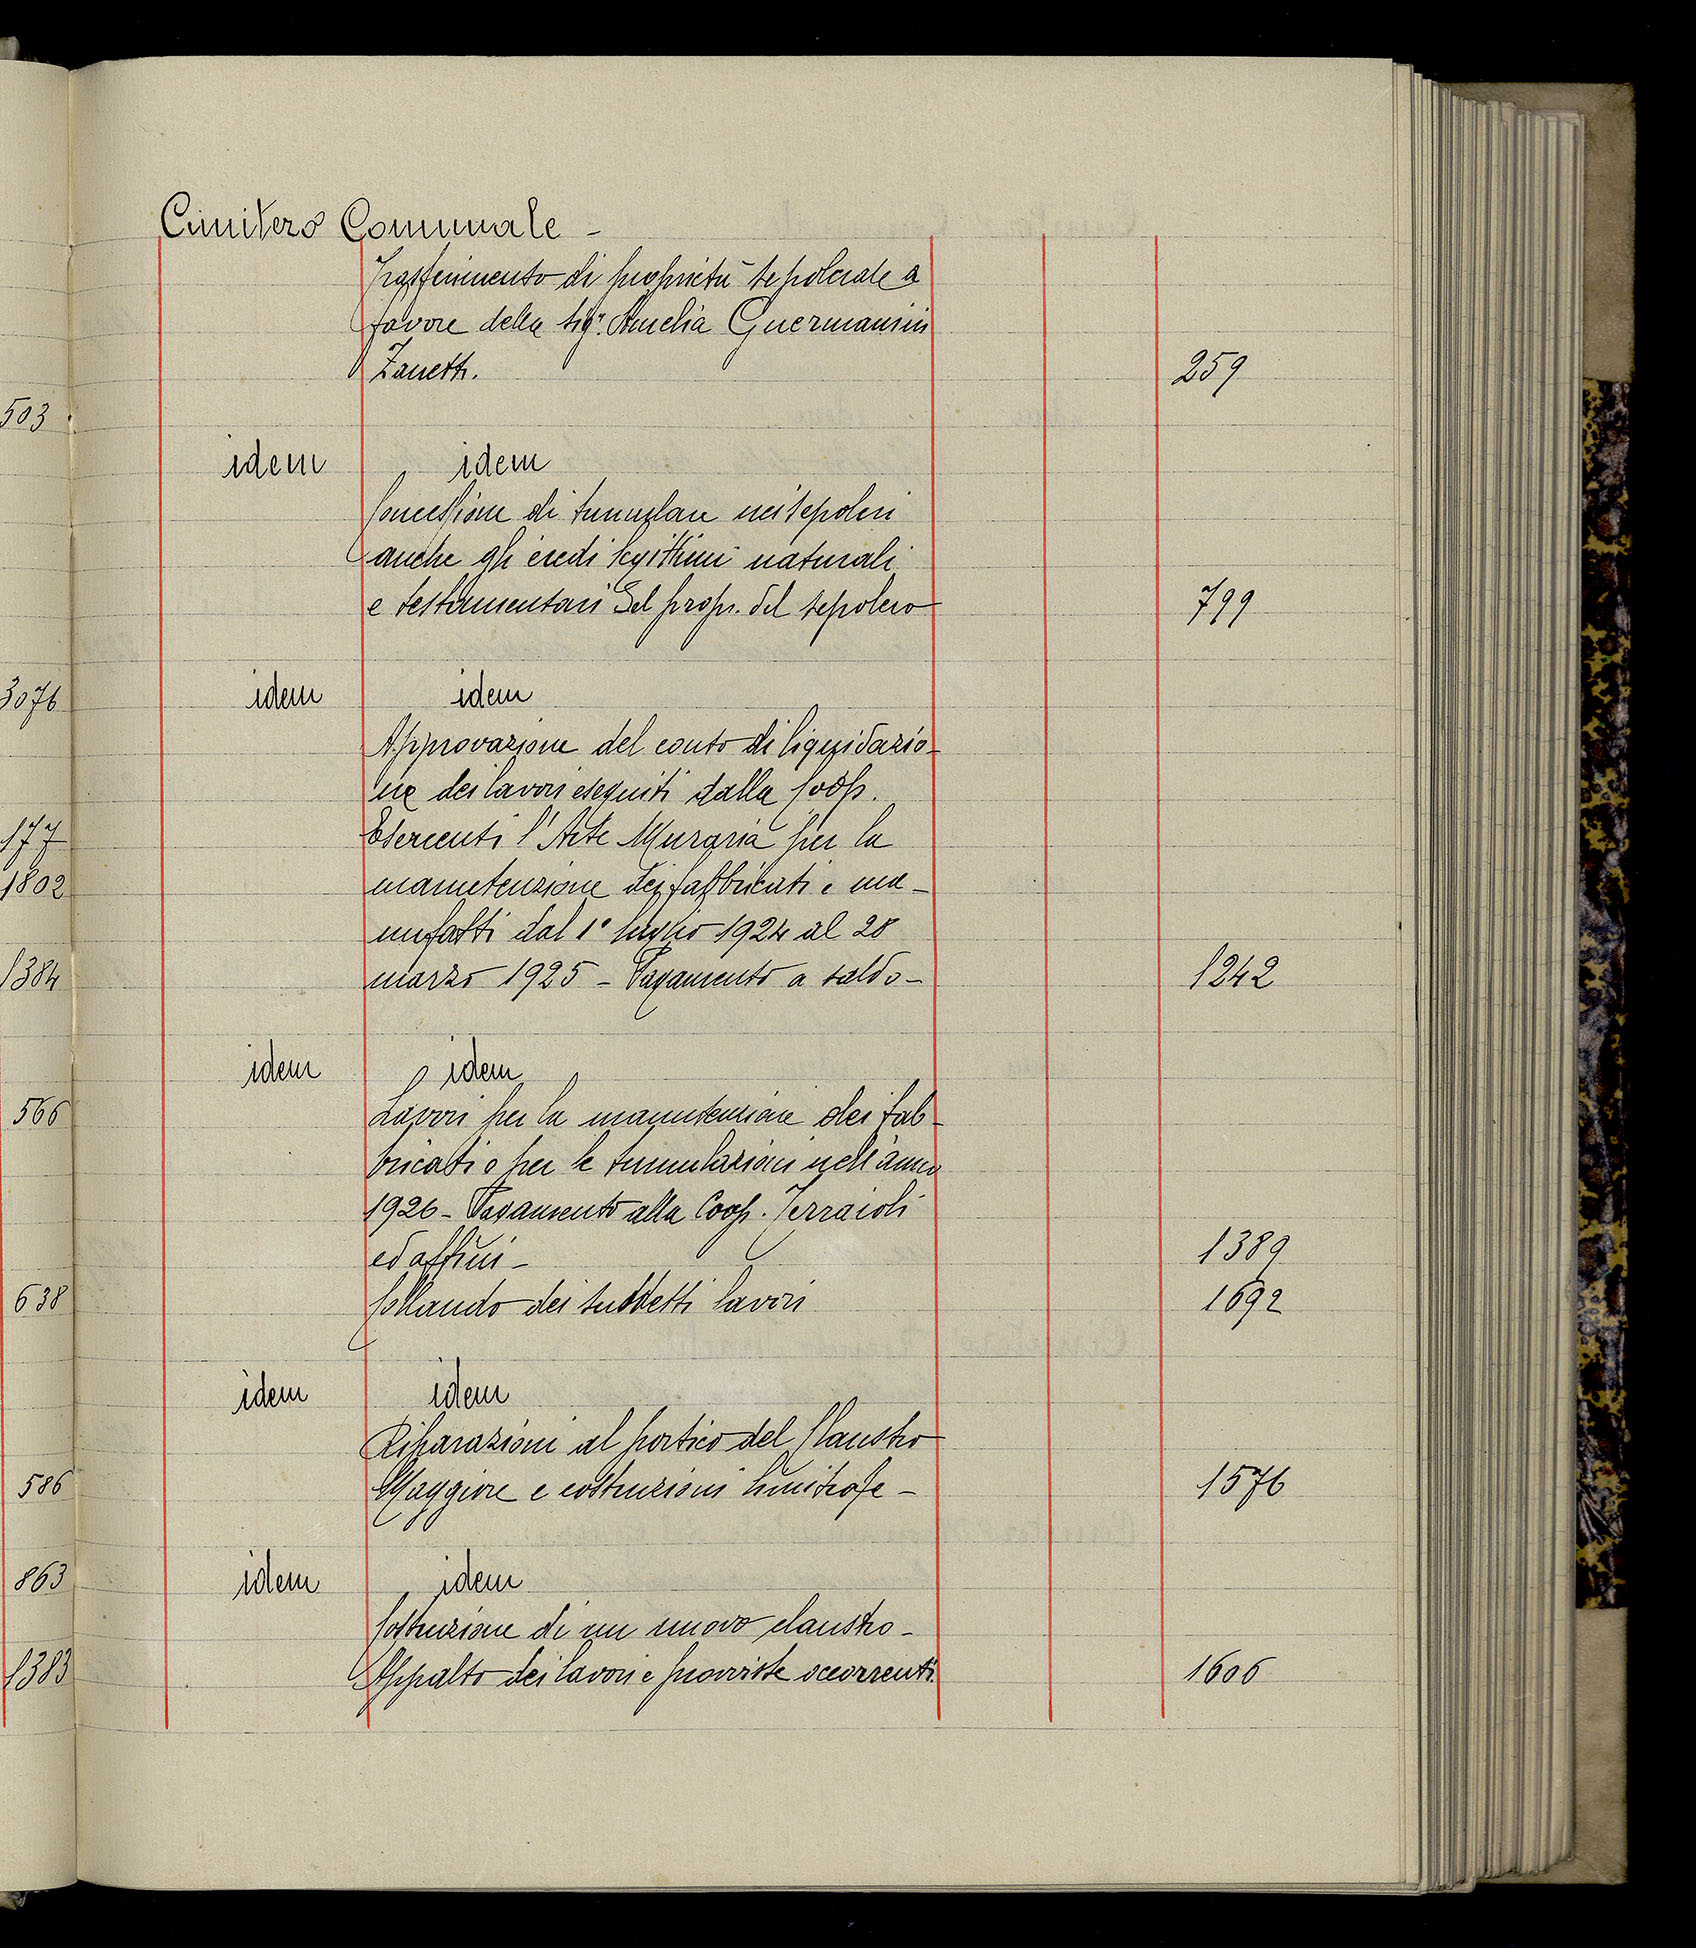 Cimitero Comunale -
Trasferimento di proprietà sepolcrale a
favore della sigr. Amelia Guermanini
Zanetti. 259
503
idem idem
Concessione di tumulare nei sepolcri
anche gli eredi legittimi naturali
e testamentari del propr. del sepolcro 799
3076
idem idem
Approvazione del conto di liquidazio-
ne dei lavori eseguiti dalla Coop.
177
Esercenti l'Arte Muraria per la
1802
manutenzione dei fabbricati e ma-
nufatti dal 1° luglio 1924 al 28
1384
marzo 1925 - Pagamento a saldo - 1242
idem idem
566
Lavori per la manutenzione dei fab-
bricati e per le tumulazioni nell'anno
1926 - Pagamento alla Coop. Terraioli
ed affini - 1389
638
Collaudo dei suddetti lavori 1692
idem idem
Riparazioni al portico del Claustro
586
Maggiore e costruzioni limitrofe - 1576
863
idem idem
Costruzione di un nuovo claustro -
1383
Appalto dei lavori e provviste occorrenti. 1606